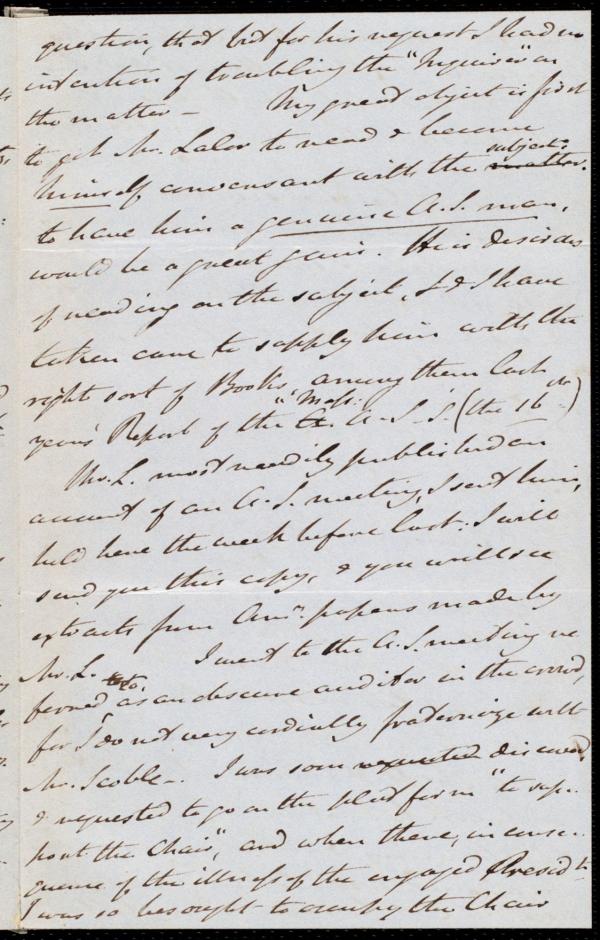 question, that but for his request I had no
intention of troubling the "Inquirer" on
the matter — My great object is first
to get Mr. Lalor to read & become
himself conversant with the matter. subject:
to have him a genuine A.S. man,
would be a great gain. He is desirous
of reading on the subject, & I have
taken care to supply him with the
right sort of Books, among them last
years' Report of the "Mass: A. S. S. (the 16th)
Mr. L. most readily published an
account of an A.S. meeting, I sent him,
held here the week before last: I will
send you this copy, & you will see
extracts from Amn. papers made by
Mr. L. I went to the A.S. meeting re
ferred to, as an obscure auditor in the crowd,
for I do not very cordially fraternize with
Mr. Scoble—. I was soon requested discovered
& requested to go on the platform "to sup-
port the Chair", and when there, in conse-
quence of the illness of the engaged Presidt
I was so besought to occupy the Chair